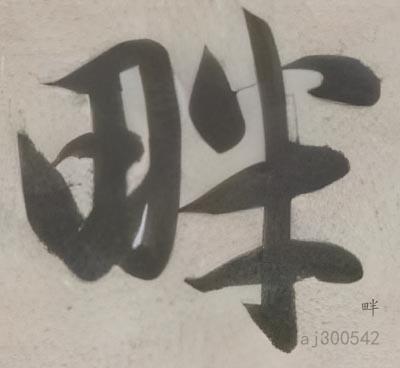 畔
畔
aj300542